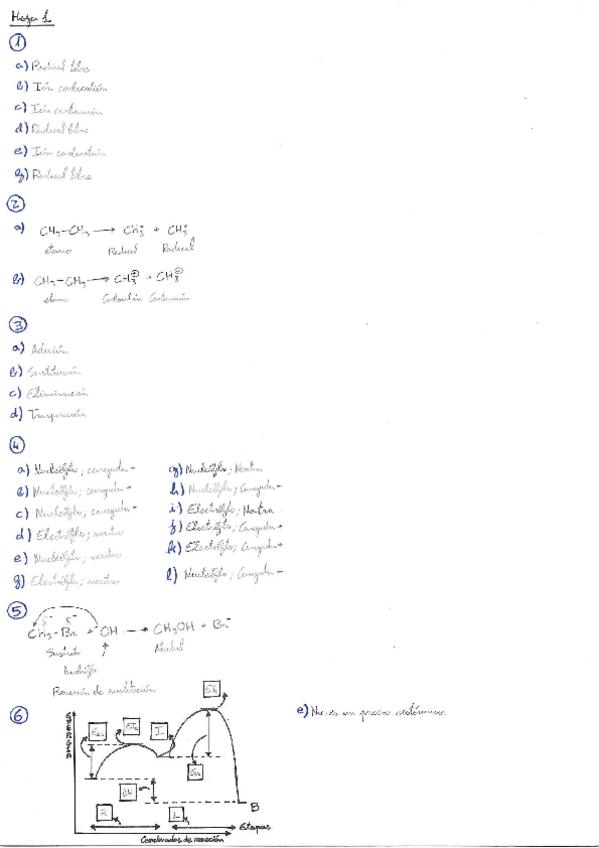 Hoja 1
1
a) Radical libre
b) Ión carbocatión
c) Ión carbanión
d) Radical libre
e) Ión carbocatión
f) Radical libre
2
a) CH3-CH3 → CH3• + CH3•
etano Radical Radical
b) CH3-CH3 → CH3⊕ + CH3⊖
etano Carbocatión Carbanión
3
a) Adición
b) Sustitución
c) Eliminación
d) Trasposición
4
a) Nucleófilo; cargada -
b) Nucleófilo; cargada -
c) Nucleófilo; cargada -
d) Electrófilo; neutro
e) Nucleófilo; neutro
f) Electrófilo; neutro
g) Nucleófilo; Neutra
h) Nucleófilo; Cargada -
i) Electrófilo; Neutra
j) Electrófilo; Cargada +
k) Electrófilo; Cargada +
l) Nucleófilo; Cargada -
5
CH3-Br + OH → CH3OH + Br-
Sustrato
Reacción de sustitución
6
e) No, es un proceso exotérmico.
ENERGÍA
I
ΔH
B
2
1
Etapas
Coordenadas de reacción